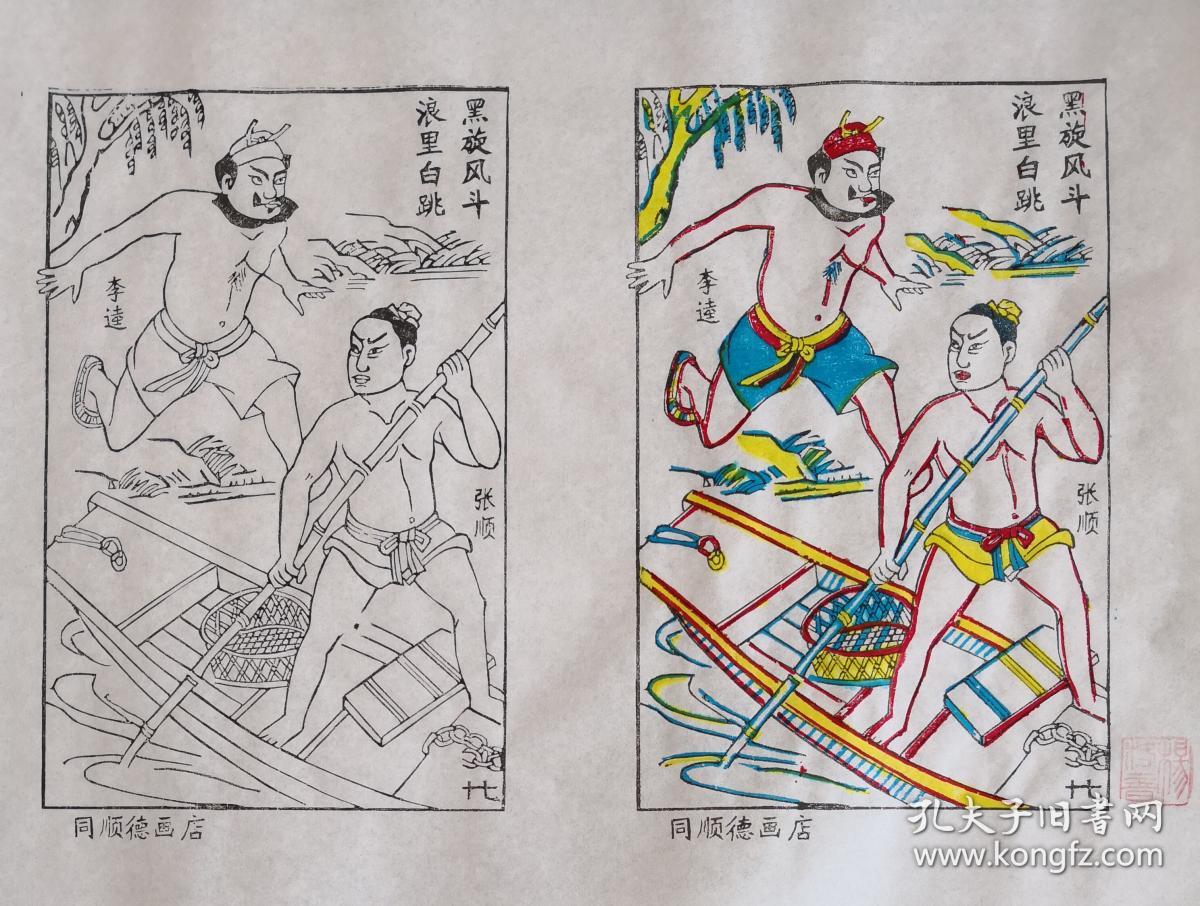 黑旋风斗
浪里白跳
李逵
张顺
廿七
同顺德画店
黑旋风斗
浪里白跳
李逵
张顺
廿七
同顺德画店
孔夫子旧书网
www.kongfz.com